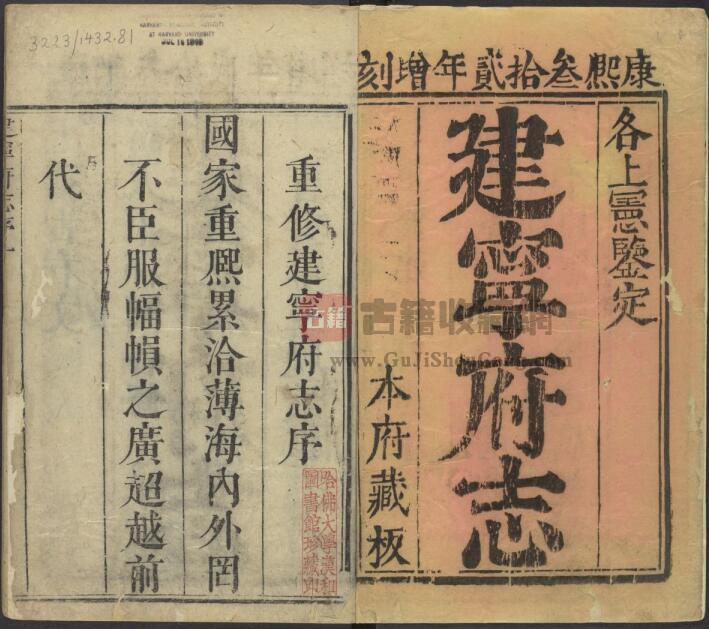 康熙叁拾貳年增刻
各上憲鑒定
建寧府志
本府藏板
重修建寧府志序
國家重熙累洽薄海內外罔
不臣服幅幀之廣超越前
代
哈佛大學漢和圖書館珍藏印
3223/1432.81
AT HARVARD UNIVERSITY
古籍
古籍收藏網
www.GuJiShouCang.com